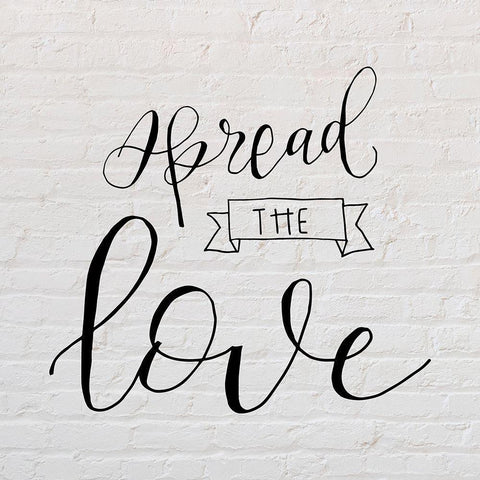 Spread
THE
love